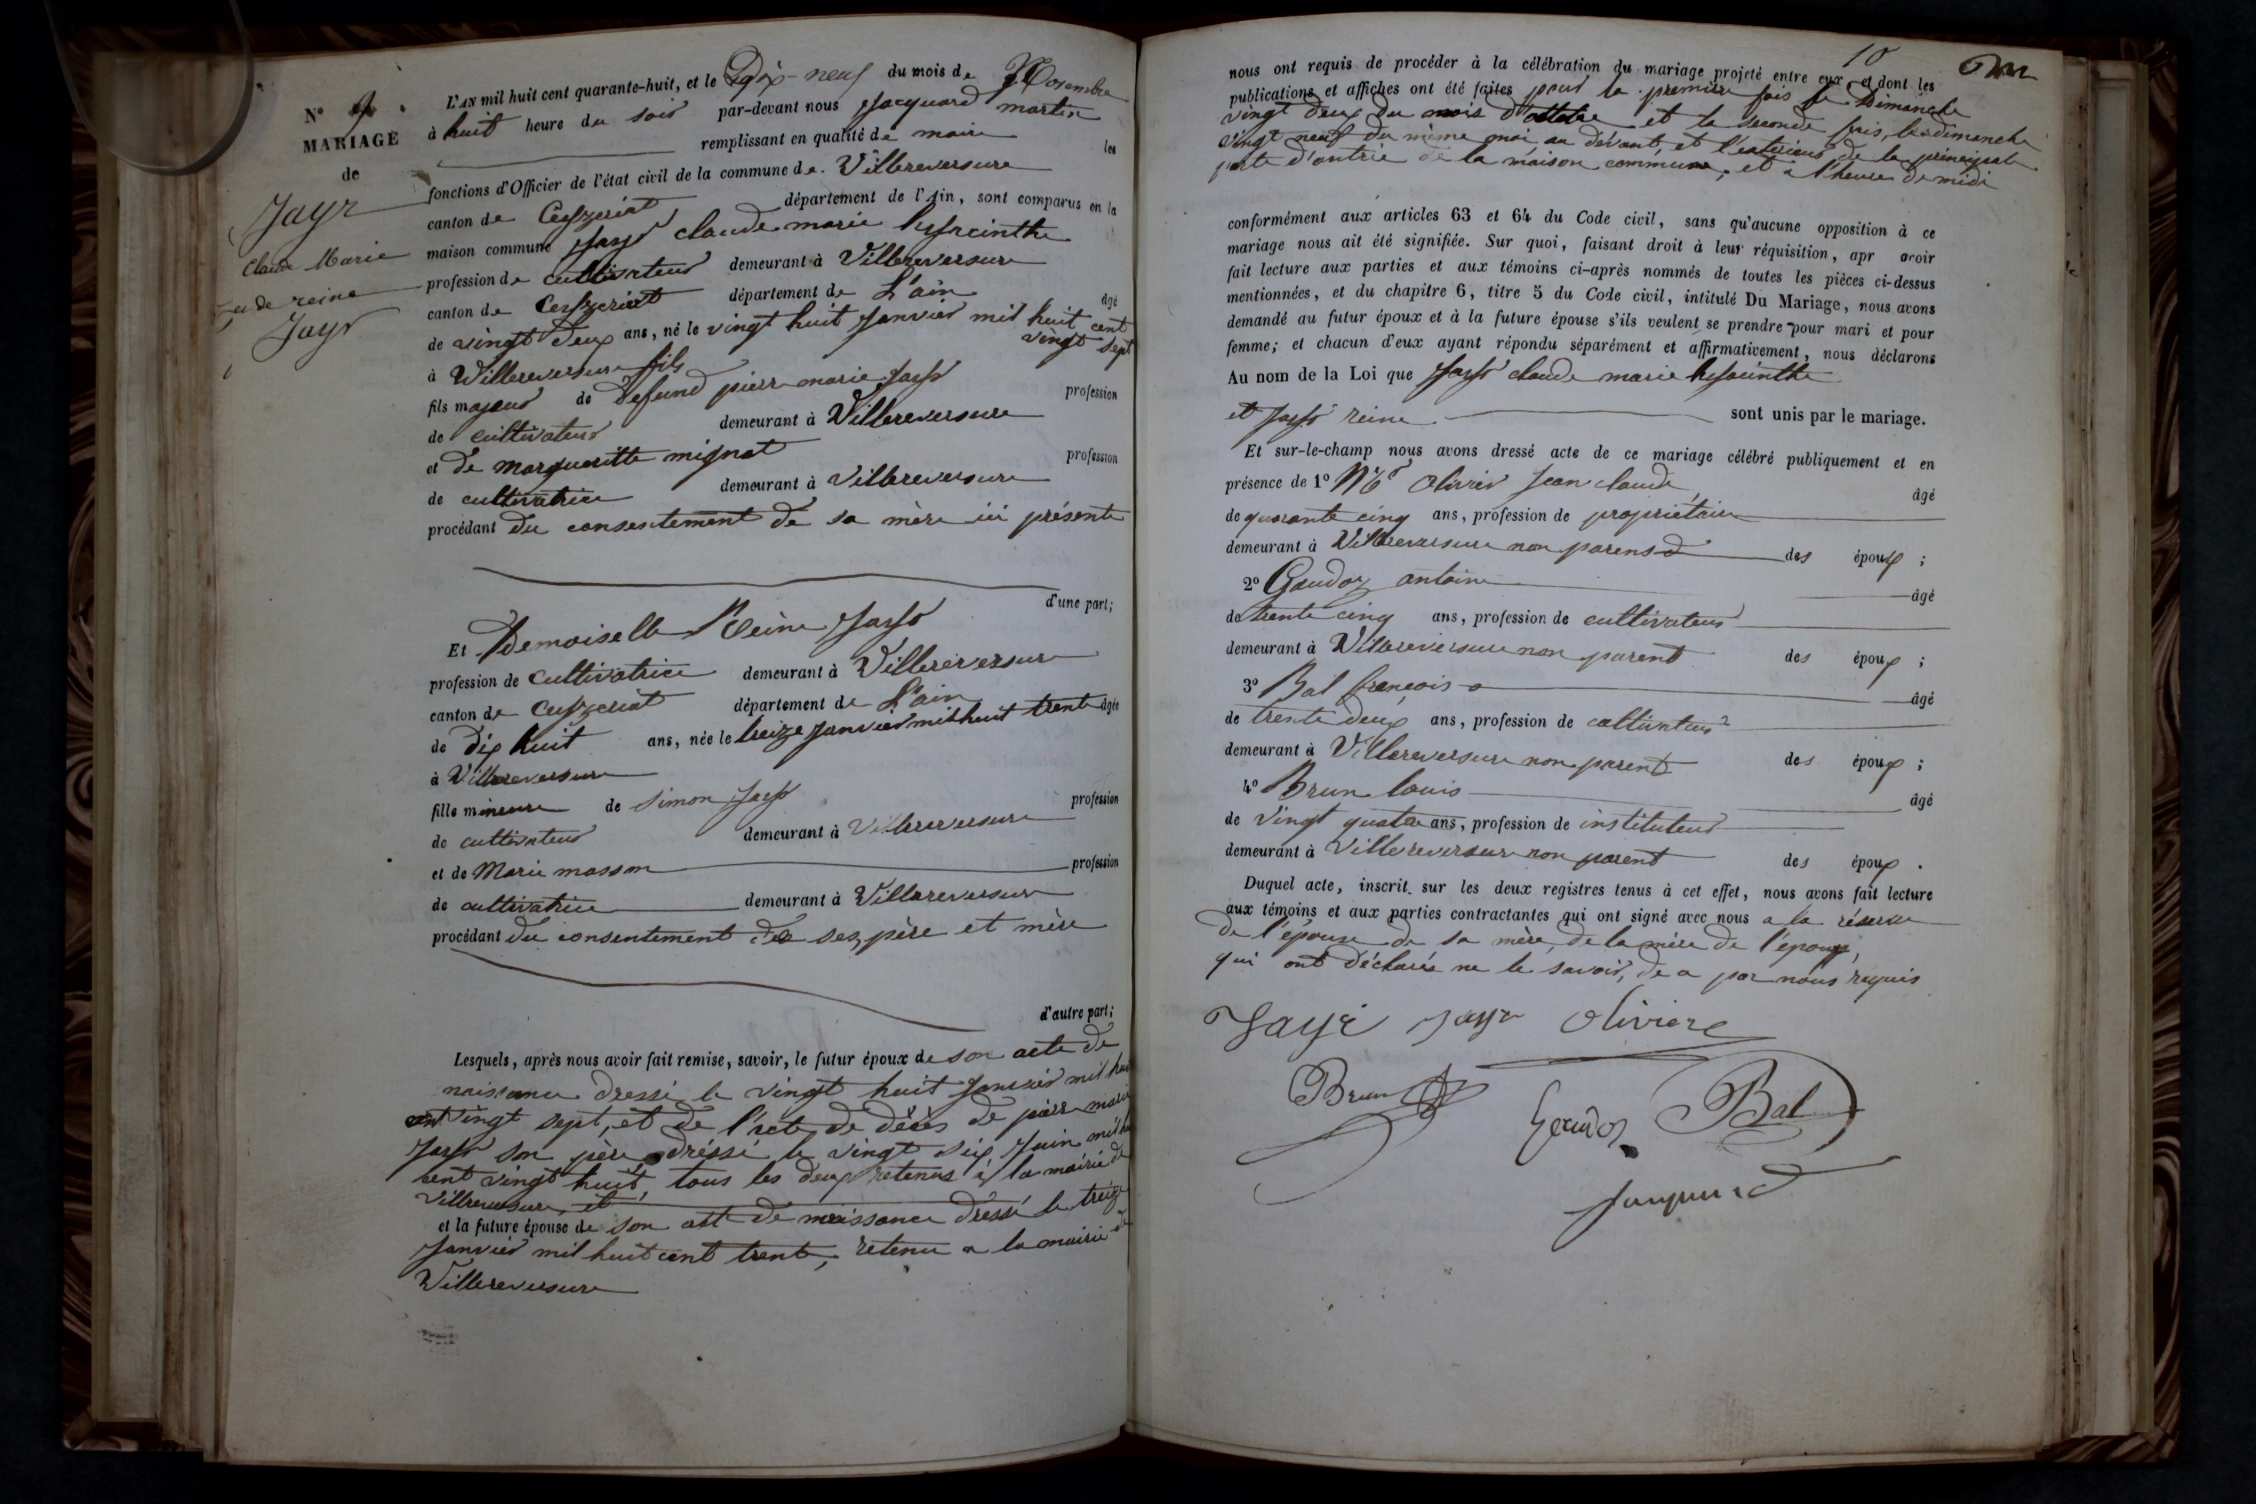 N° 9.
MARIAGE
de
Jayr
Claude Marie
et de reine
Jayr
L'AN mil huit cent quarante-huit, et le Dix-neuf du mois de Novembre
à huit heure du soir par-devant nous Jacquard martin
remplissant en qualité de maire les
fonctions d'Officier de l'état civil de la commune de Villereversure
canton de Ceyzeriat département de l'Ain, sont comparus en la
maison commune Jayr claude marie hyacinthe
profession de cultivateur demeurant à Villereversure
canton de Ceyzeriat département de L'ain âgé
de vingt deux ans, né le vingt huit Janvier mil huit cent
vingt sept
à Villereversure fils
fils majeur de Defund pierre marie Jayr profession
de cultivateur demeurant à Villereversure
et de margueritte mignat profession
de cultivatrice demeurant à Villereversure
procédant du consentement de sa mère ici présente
d'une part;
Et Demoiselle Reine Jayr
profession de cultivatrice demeurant à Villereversure
canton de Ceyzeriat département de L'ain
de dix huit ans, née le treize Janvier mil huit trente âgée
à Villereversure
fille mineure de Simon Jayr profession
de cultivateur demeurant à Villereversure
et de Marie masson profession
de cultivatrice demeurant à Villereversure
procédant du consentement de ses père et mère
d'autre part;
Lesquels, après nous avoir fait remise, savoir, le futur époux de son acte de
naissance dressé le vingt huit Janvier mil huit
cent vingt sept, et de l'acte de décès de pierre marie
Jayr son père dréssé le vingt six Juin mil huit
cent vingt huit, tous les deux retenus à la mairie de
Villereversure, et
et la future épouse de son acte de naissance dressé le treize
Janvier mil huit cent trente, retenu a la mairie de
Villereversure
10
nous ont requis de procéder à la célébration du mariage projeté entre eux et dont les
publications et affiches ont été faites pour la première fois le Dimanche
vingt deux du mois d'octobre et la seconde fois, le dimanche
vingt neuf du même moi, au dévant et l'exterieur de la principale
porte d'entrée de la maison commune, et a l'heure de midi
conformément aux articles 63 et 64 du Code civil, sans qu'aucune opposition à ce
mariage nous ait été signifiée. Sur quoi, faisant droit à leur réquisition, apr avoir
fait lecture aux parties et aux témoins ci-après nommés de toutes les pièces ci-dessus
mentionnées, et du chapitre 6, titre 5 du Code civil, intitulé Du Mariage, nous avons
demandé au futur époux et à la future épouse s'ils veulent se prendre pour mari et pour
femme; et chacun d'eux ayant répondu séparément et affirmativement, nous déclarons
Au nom de la Loi que Jayr claude marie hyacinthe
et Jayr reine sont unis par le mariage.
Et sur-le-champ nous avons dressé acte de ce mariage célébré publiquement et en
présence de 1° Olivier Jean claude âgé
de quarante cinq ans, profession de propriétaire
demeurant à Villereversure non parens des époux ;
2° Gaudoz antoine âgé
de trente cinq ans, profession de cultivateur
demeurant à Villereversure non parent des époux ;
3° Bal françois âgé
de trente deux ans, profession de cultivateur
demeurant à Villereversure non parent des époux ;
4° Brun louis âgé
de vingt quatre ans, profession de instituteur
demeurant à Villereversure non parent des époux .
Duquel acte, inscrit sur les deux registres tenus à cet effet, nous avons fait lecture
aux témoins et aux parties contractantes qui ont signé avec nous a la réserve
de l'épouse de sa mère, de la mère de l'époux,
qui ont déclarés ne le savoir, de a par nous requis
Jayr Jayr Olivier
Brun Gaudoz Bal
Jacquard